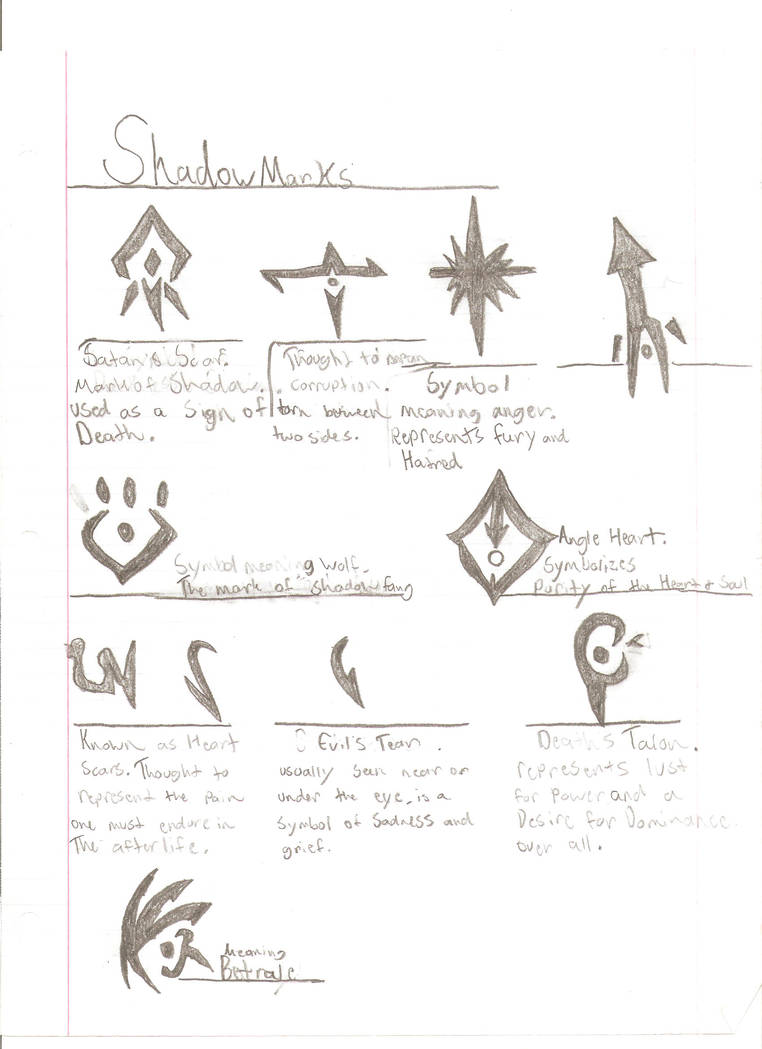 Shadow Marks
Satan's Scar.
Mark of Shadow.
used as a Sign of
Death.
Thought to mean
corruption.
torn between
two sides.
Symbol
meaning anger.
Represents fury and
Hatred
Symbol meaning Wolf.
The mark of shadow fang
Angle Heart.
Symbolizes
Purity of the Heart & Soul
Known as Heart
Scars. Thought to
represent the Pain
one must endure in
The afterlife.
Evil's Tear.
usually seen near or
under the eye, is a
Symbol of Sadness and
grief.
Death's Talon.
represents lust
for Power and a
Desire for Dominance
over all.
Meaning
Betrale